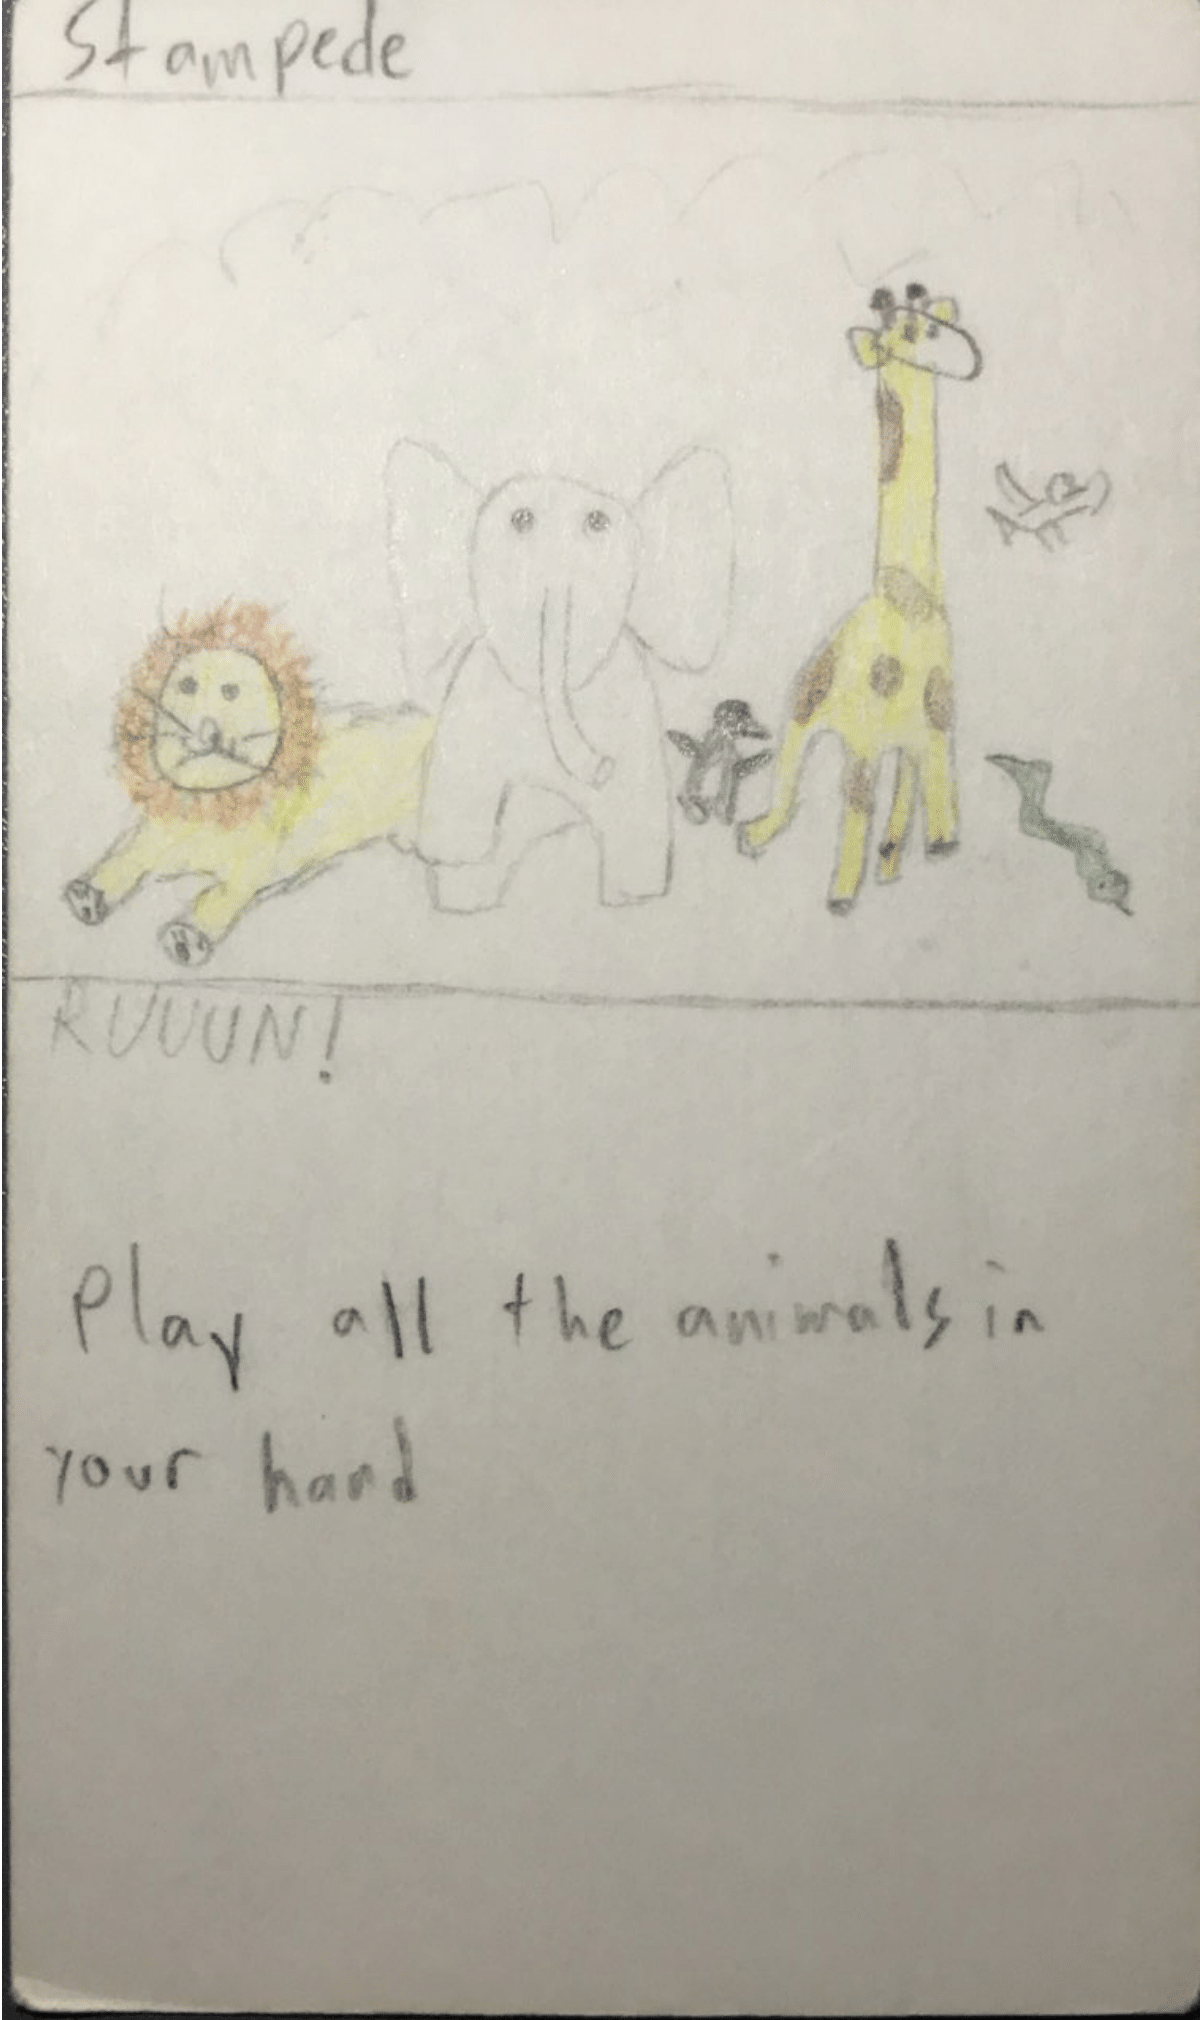 Stampede
RUUUN!
Play all the animals in
your hand